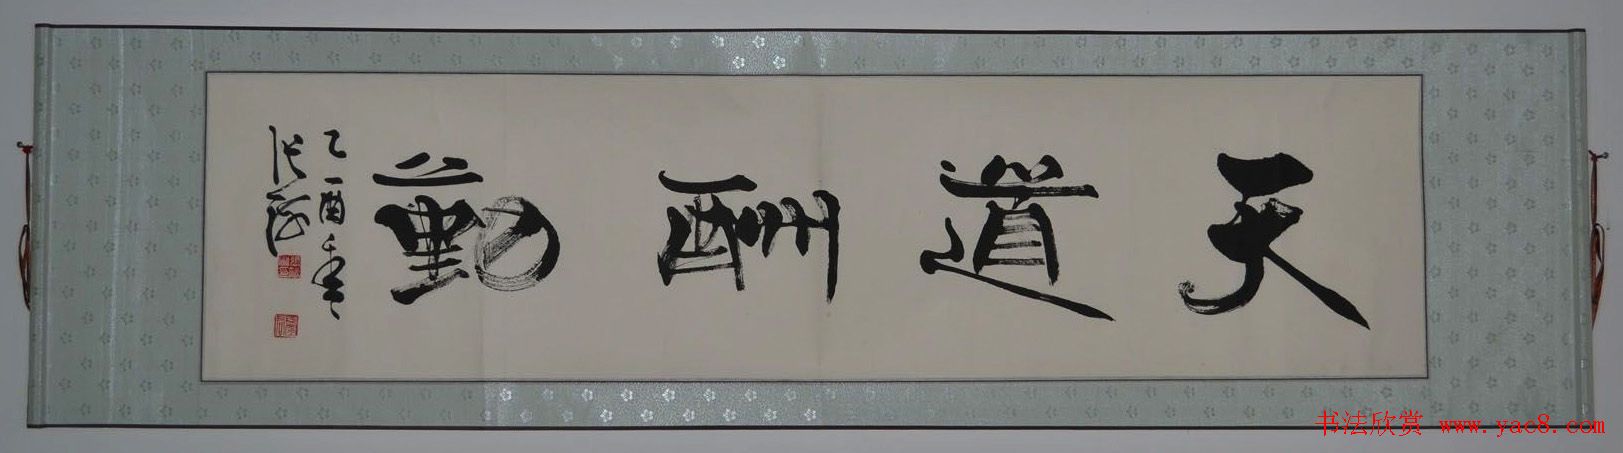 天道酬勤
乙酉年春
张海
书法欣赏 www.yac8.com